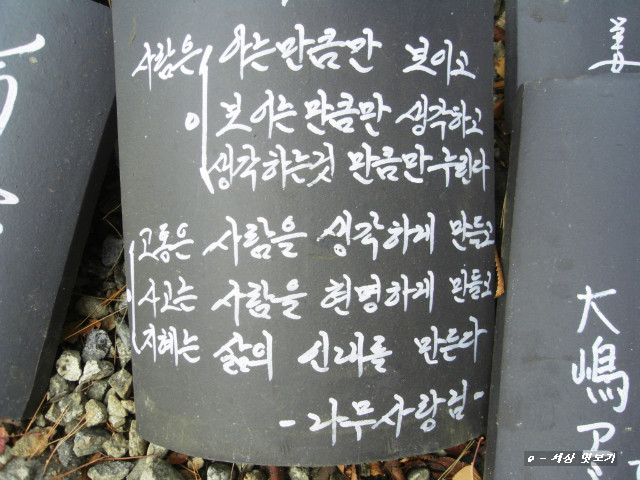 사람은 아는만큼만 보이고
보이는 만큼만 생각하고
생각하는것 만큼만 누린다
고통은 사람을 생각하게 만들고
사고는 사람을 현명하게 만들고
지혜는 삶의 인내를 만든다
-나무사랑님-
姜
大嶋ア
0 - 세상 엿보기